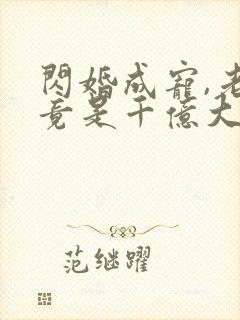 閃婚成寵,老
竟是千億大
范继躍